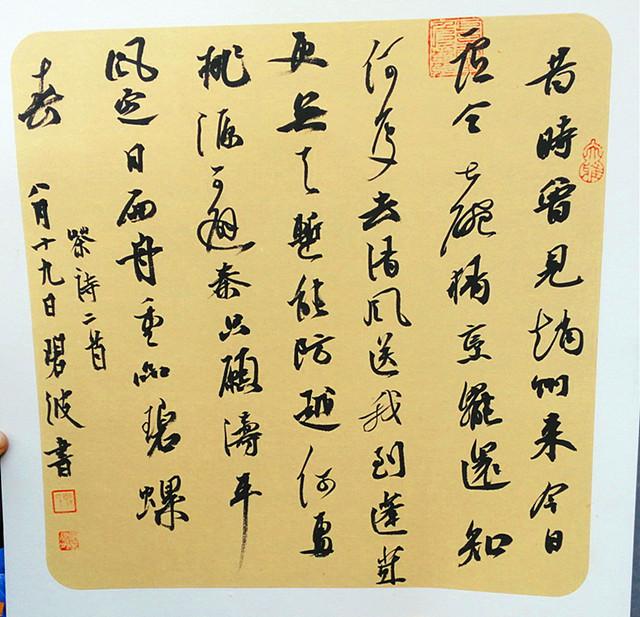 昔時曾見趙州來今日
盧仝七碗精烹罷還知
何處去清風送我到蓬萊
更無天塹能防越何事
桃源可避秦只願濤平
風定日兩舟重泊碧螺
春
茶詩二首
八月十九日碧波書